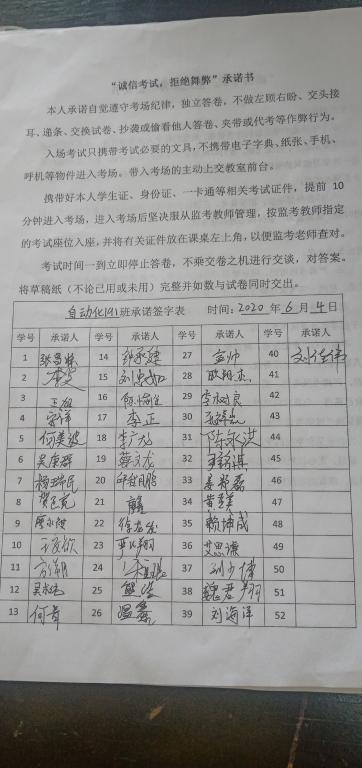 “诚信考试，拒绝舞弊”承诺书
本人承诺自觉遵守考场纪律，独立答卷，不做左顾右盼、交头接
耳、递条、交换试卷、抄袭或偷看他人答卷、夹带或代考等作弊行为。
入场考试只携带考试必要的文具，不携带电子字典、纸张、手机、
呼机等物件进入考场。带入考场的主动上交教室前台。
携带好本人学生证、身份证、一卡通等相关考试证件，提前 10
分钟进入考场，进入考场后坚决服从监考教师管理，按监考教师指定
的考试座位入座，并将有关证件放在课桌左上角，以便监考老师查对。
考试时间一到立即停止答卷，不乘交卷之机进行交谈，对答案。
将草稿纸（不论已用或未用）完整并如数与试卷同时交出。
自动化 班承诺签字表 时间：2020 年 6 月 4 日
学号 承诺人 学号 承诺人 学号 承诺人 学号 承诺人
1 14 27 40 刘佳伟
2 15 28 欧阳杰 41
3 16 29 42
4 宋洋 17 李正 30 43
5 何美波 18 李广 31 陈永洪 44
6 吴康群 19 蔡文龙 32 45
7 杨瑞民 20 33 姜 磊 46
8 21 34 黄 美 47
9 22 35 赖坤成 48
10 23 36 艾思源 49
11 24 37 刘少伟 50
12 25 熊 38 魏君 51
13 何肯 26 温鑫 39 刘海洋 52